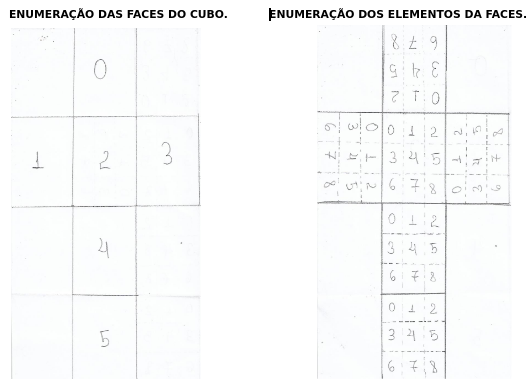 ENUMERAÇÃO DAS FACES DO CUBO.
0
1 2 3
4
5
ENUMERAÇÃO DOS ELEMENTOS DA FACES.
8 7 6
5 4 3
2 1 0
6 3 0 0 1 2 2 5 8
7 4 1 3 4 5 1 4 7
8 5 2 6 7 8 0 3 6
0 1 2
3 4 5
6 7 8
0 1 2
3 4 5
6 7 8